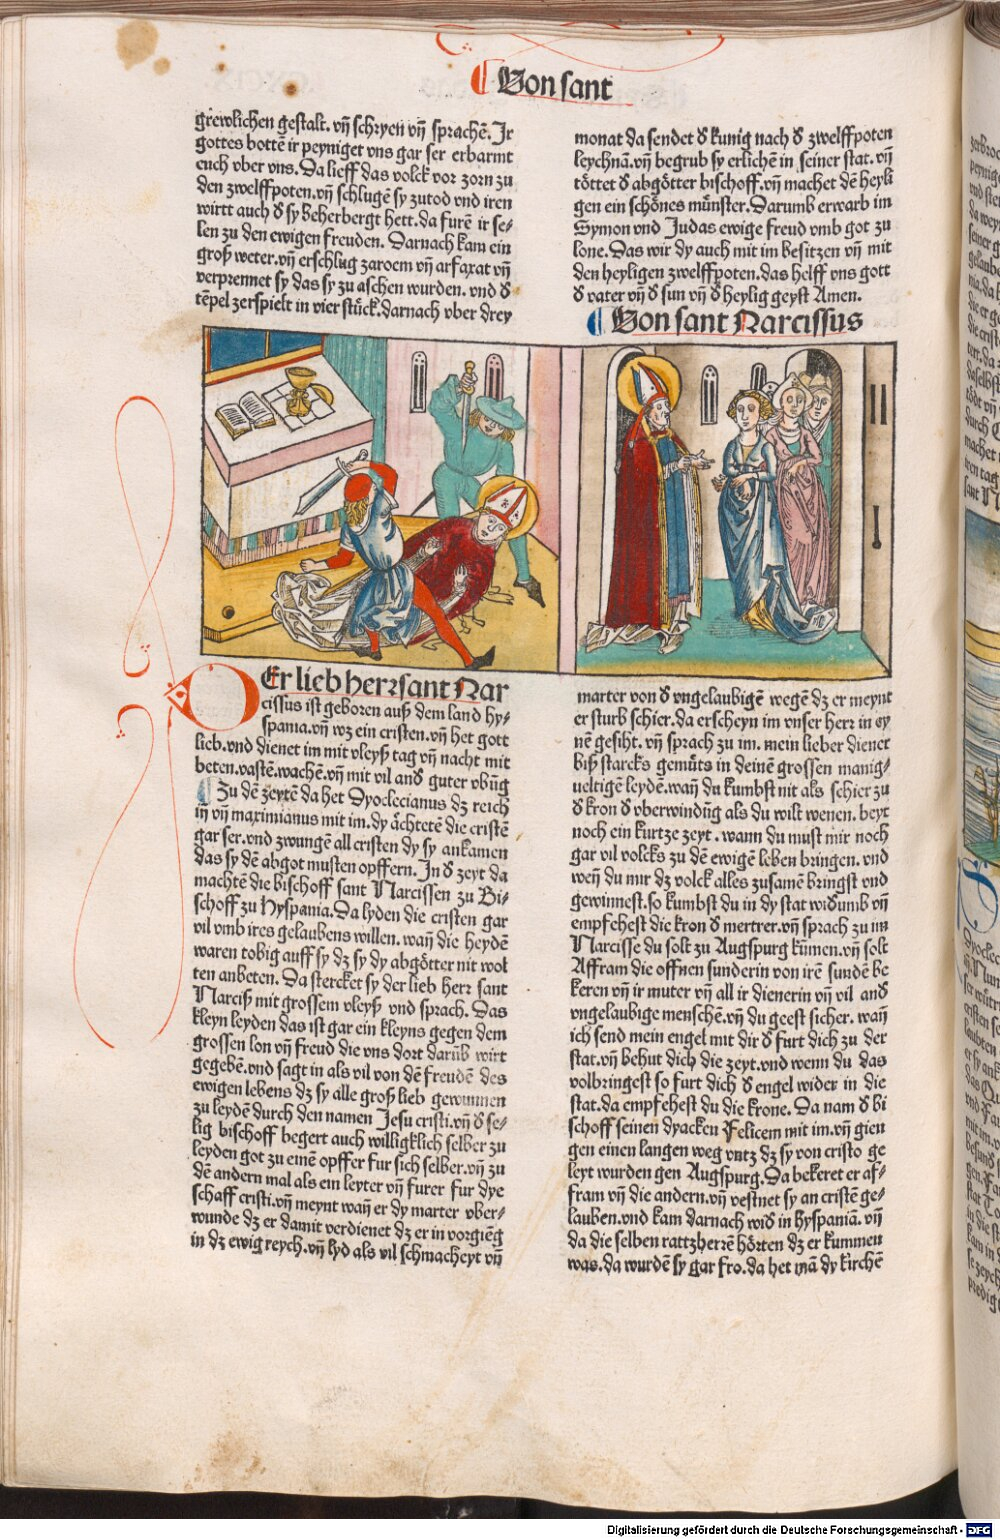 Von sant
grewlichen gestalt. vñ schryen vñ sprachē. Ir
gottes bottē ir peyniget vns gar ser erbarmt
euch vber vns. Da lieff das volck vor zorn zu
den zwelffpoten. vñ schlugē sy zutod vnd iren
wirtt auch ď sy beherbergt hett. da furē ir se⸗
len zu den ewigen freuden. Darnach kam ein
groß weter. vñ erschlug zaroem vñ arfaxat vñ
verprennet sy das sy zu aschen wurden. vnd ď
tēpel zerspielt in vier stück. darnach vber drey
monat da sendet ď kunig nach ď zwelffpoten
leychnā. vñ begrub sy erlichē in seiner stat. vñ
töttet ď abgötter bischoff. vñ machet dē heyli
gen ein schönes münster. Darumb erwarb im
Symon vnd Judas ewige freud vmb got zu
lone. Das wir dy auch mit im besitzen vñ mit
den heyligen zwelffpoten. das helff vns gott
ď vater vñ ď sun vñ ď heylig geyst Amen.
Von sant Narcissus
DEr lieb herr sant Nar
cissus ist geboren auß dem land hy⸗
spania. vñ wz ein cristen. vñ het gott
lieb. vnd dienet im mit vleyß tag vñ nacht mit
beten. vastē. wachē. vñ mit vil anď guter vbūg
Zu dē zeytē da het Dyoclecianus dz reich
iñ vñ maximianus mit im. dy ächtetē die cristē
gar ser. vnd zwungē all cristen dy sy ankamen
das sy dē abgot musten opffern. In ď zeyt da
machtē die bischoff sant Narcissen zu Bi⸗
schoff zu Hyspania. Da lyden die cristen gar
vil vmb ires gelaubens willen. wañ die heydē
waren tobig auff sy dz sy dy abgötter nit wol
ten anbeten. Da stercket sy der lieb herr sant
Narciß mit grossem vleyß vnd sprach. Das
kleyn leyden das ist gar ein kleyns gegen dem
grossen lon vñ freud die vns dort darüb wirt
gegebē. vnd sagt in als vil von dē freudē des
ewigen lebens dz sy alle groß lieb gewunnen
zu leydē durch den namen Jesu cristi. vñ ď se⸗
lig bischoff begert auch williglich selber zu
leyden got zu einē opffer fur sich selber. vñ zu
dē andern mal als ein leyter vñ furer fur dye
schaff cristi. vñ meynt wañ er dy marter vber⸗
wunde dz er damit verdienet dz er in vorgiēg
in dz ewig reych. vñ lyd als vil schmacheyt vñ
marter von ď vngelaubigē wegē dz er meynt
er sturb schier. da erscheyn im vnser herr in ey
nē gesiht. vñ sprach zu im. mein lieber diener
biß starcks gemüts in deinē grossen manig⸗
ueltigē leydē. wañ du kumbst nit als schier zu
ď kron ď vberwindūg als du wilt wenen. beyt
noch ein kurtze zeyt. wann du must mir noch
gar vil volcks zu dē ewigē leben bringen. vnd
weñ du mir dz volck alles zusamē bringst vnd
gewinnest. so kumbst du in dy stat widumb vñ
empfehest die kron ď mertrer. vñ sprach zu im
Narcisse du solt zu Augspurg kūmen. vñ solt
Affram die offnen sunderin von irē sundē be
keren vñ ir muter vñ all ir dienerin vñ vil anď
vngelaubige menschē. vñ du geest sicher. wañ
ich send mein engel mit dir ď furt dich zu der
stat. vñ behut dich die zeyt. vnd wenn du das
volbringest so furt dich ď engel wider in die
stat. da empfehest du die krone. Da nam ď bi
schoff seinen dyacken Felicem mit im. vñ gien
gen einen langen weg vntz dz sy von cristo ge
leyt wurden gen Augspurg. Da bekeret er af⸗
fram vñ die andern. vñ vestnet sy an cristē ge⸗
lauben. vnd kam darnach wiď in hyspaniā. vñ
da die selben rattzherrē hörten dz er kummen
was. da wurdē sy gar fro. da het mā dy kirchē
Digitalisierung gefördert durch die Deutsche Forschungsgemeinschaft - DFG